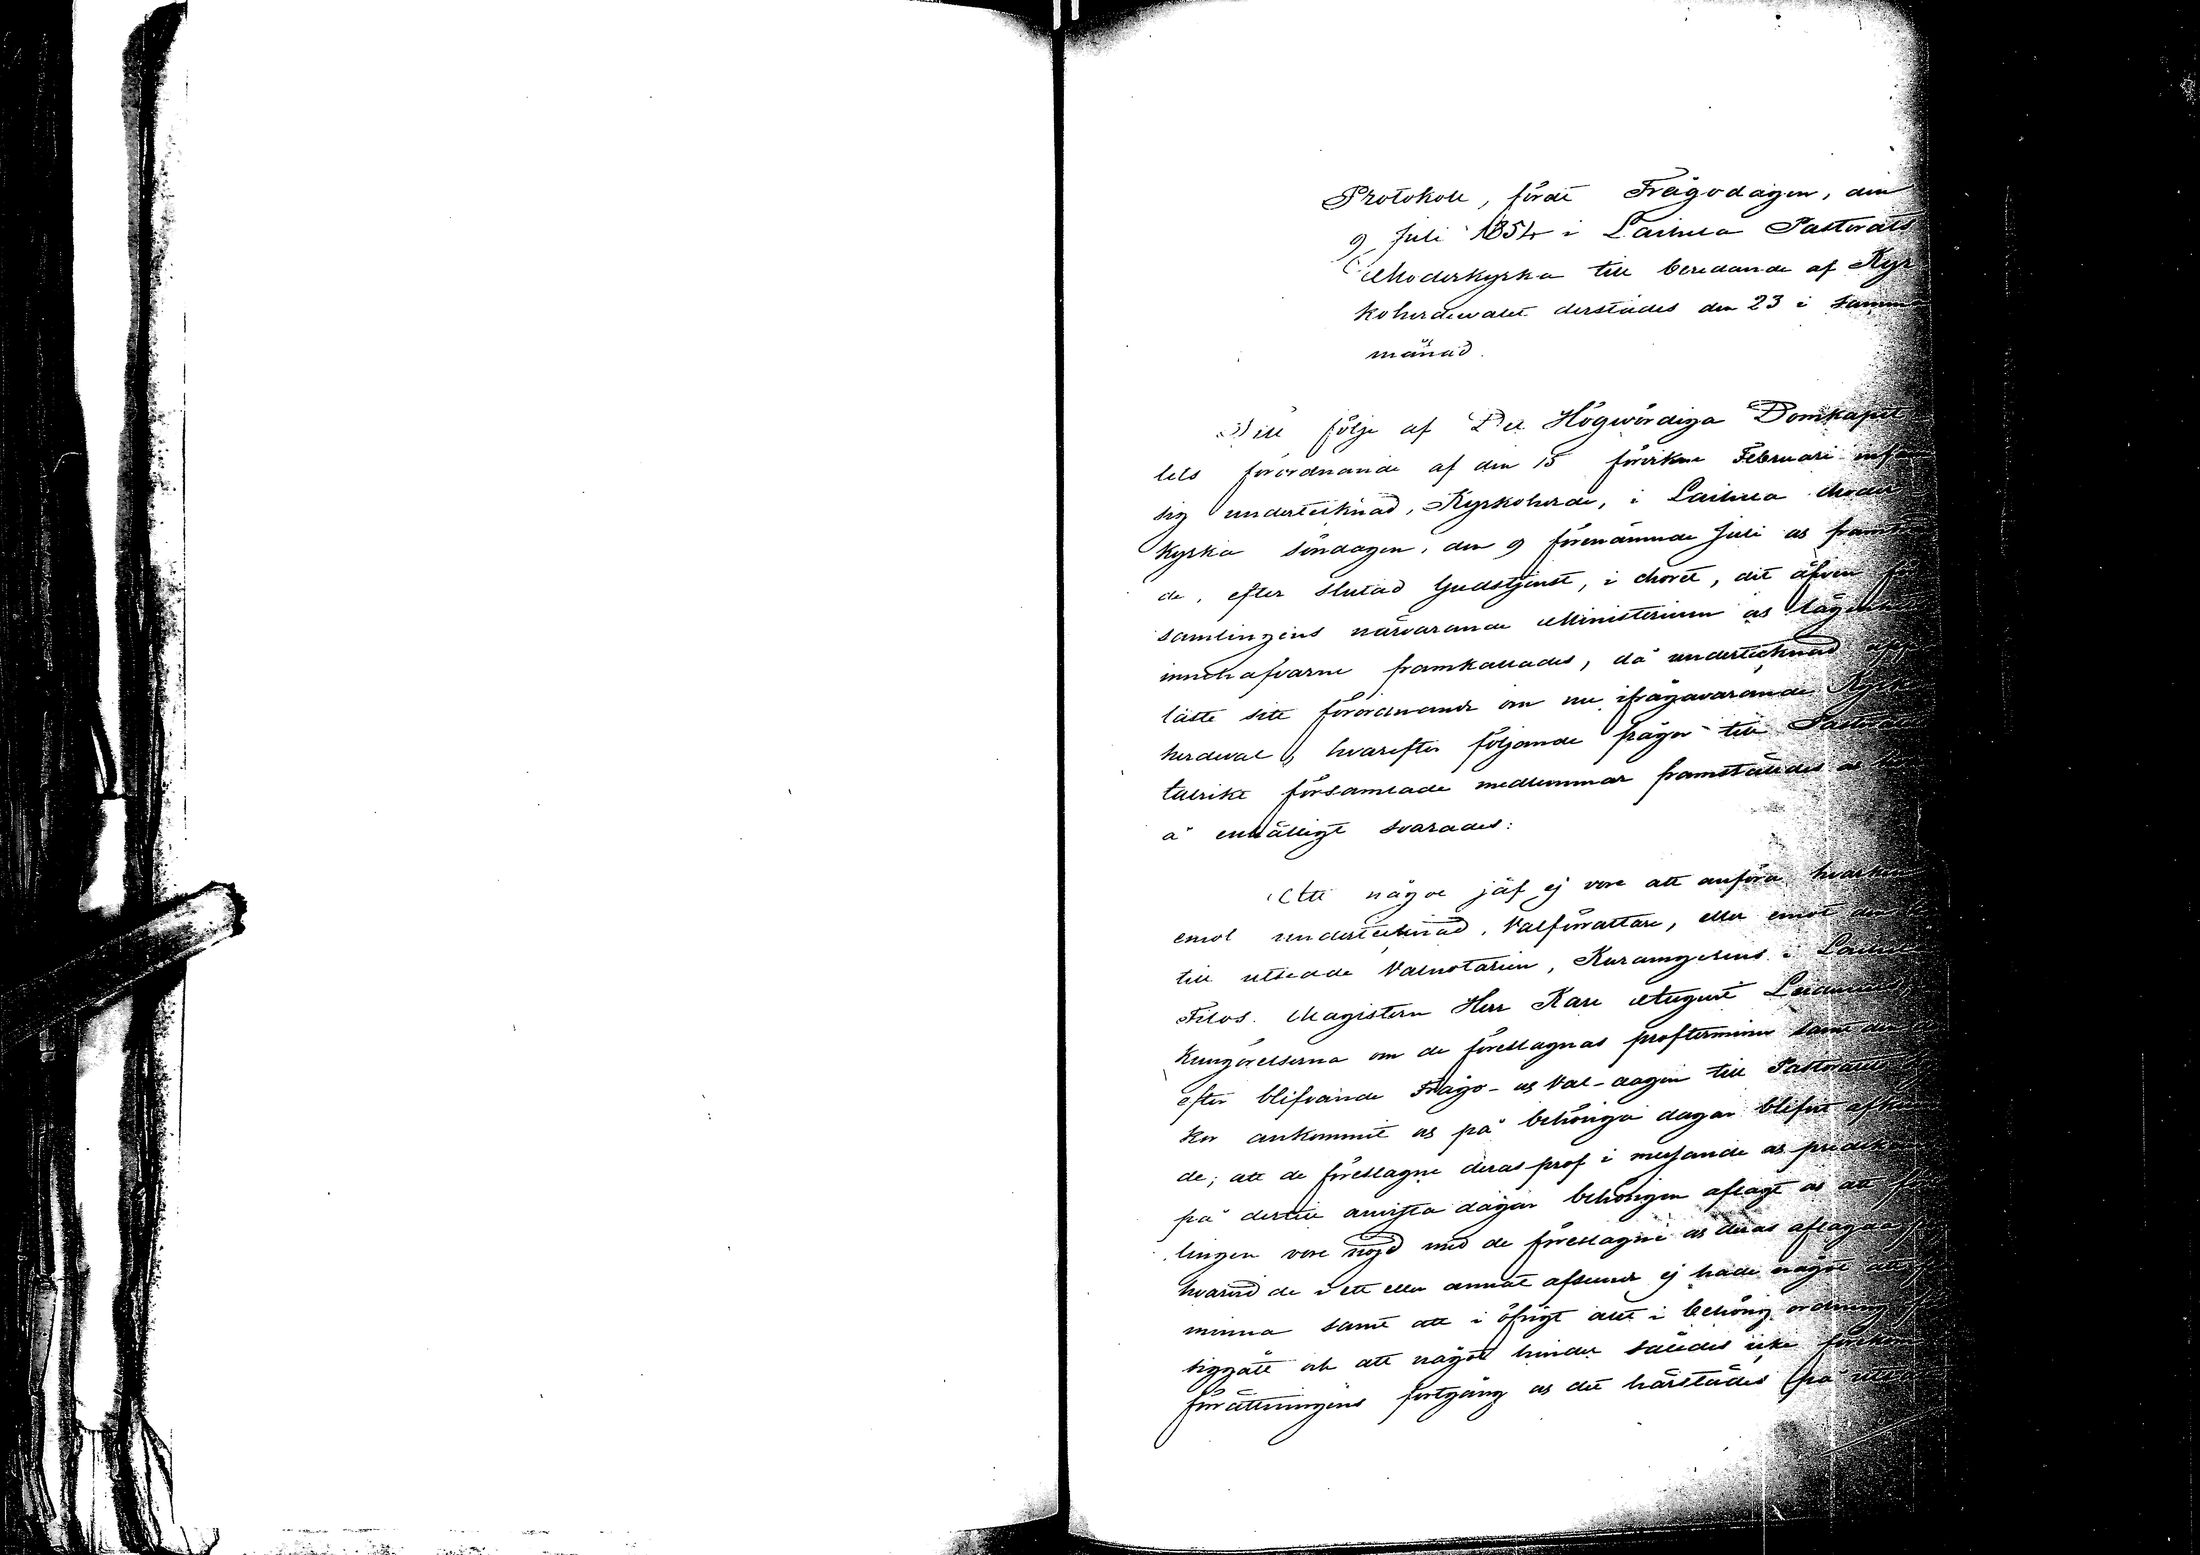 Protokoll, fördt Frågodagen, den
9 Juli 1854 i Laihela Pastorats
Moderkyrka till beredande af Kyr
koherdevalet derstädes den 23 i samma
månad.
Till följe af Det Högwördiga Domkapit
lets förordnande af den 15 förvikne Februari infann
sig undertecknad, Kyrkoherde, i Laihela Moder
kyrka söndagen, den 9 förenämnde Juli och framträd
de, efter slutad Gudstjenst, i choret, dit äfven för
samlingens närvarande Ministerium och lägenhets
innehafvarne framkallades, då undertecknad upp
läste sitt förordnande om nu ifrågavarande Kyrko
herdeval, hvarefter följande frågor till Pastoratets
talrikt församlade medlemmar framställdes och
å enhälligt svarades:
Att något jäf ej vore att anföra hvarken
emot undertecknad, Valförrättare, eller emot den
till utsedde Valnotarien, Kursmgerens i Laihela
Filos. Magistern Herr Karl August
Kungörelserna om de föreslagnas profterminer samt den
efter blifvande Frågo- och Val-dagen till Pastoratets
kor ankommit och på behöriga dagar blifvit afkunna
de; att de föreslagne deras prof i messande och predikande
på dertill anvista dagar behörigen aflagt och att
lingen vore nöjd med de föreslagne och deras aflagda
hvarvid de i ett eller annat afseende ej hade något att
minna samt att i öfrigt allt i behörig ordning
siggått och att något hinder således icke
förrättningens fortgång och det härstädes på